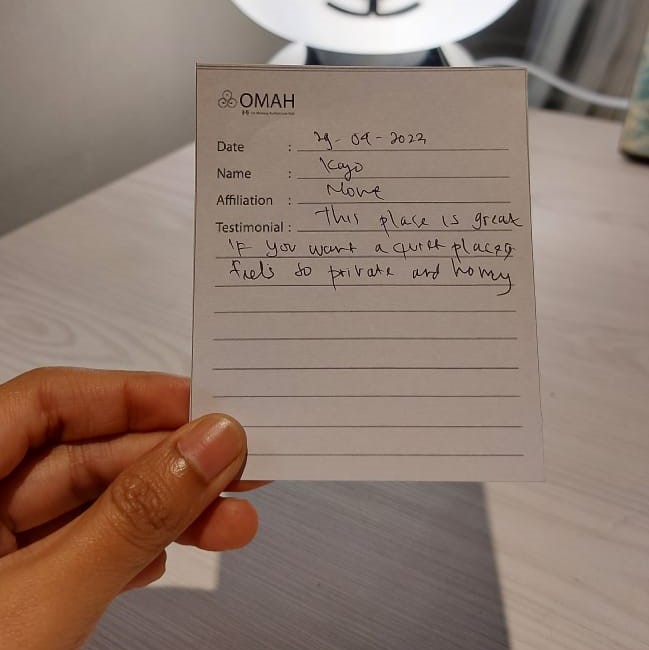 OMAH
Date : 29-09-2022
Name : Kayo
Affiliation : None
Testimonial : This place is great
if you want a quiet place,
feels so private and homy